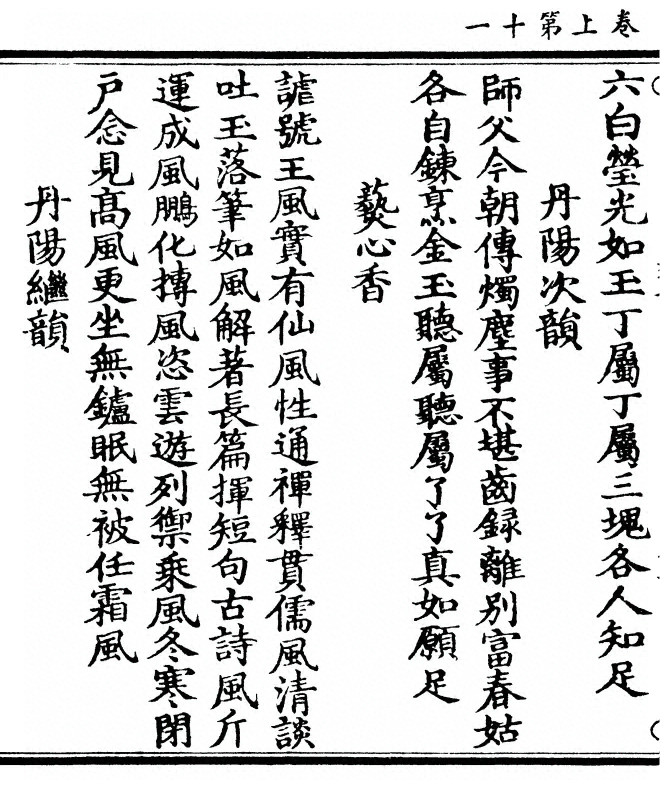 卷上第十一
六白瑩光如玉丁屬丁屬三塊各人知足
丹陽次韻
師父今朝傳燭塵事不堪齒録離別富春姑
各自鍊烹金玉聽屬聽屬了了真如願足
爇心香
謔號王風實有仙風性通禪釋貫儒風清談
吐玉落筆如風解著長篇揮短句古詩風斤
運成風鵬化摶風恣雲遊列禦乘風冬寒閉
戸念見髙風更坐無鑪眠無被任霜風
丹陽繼韻